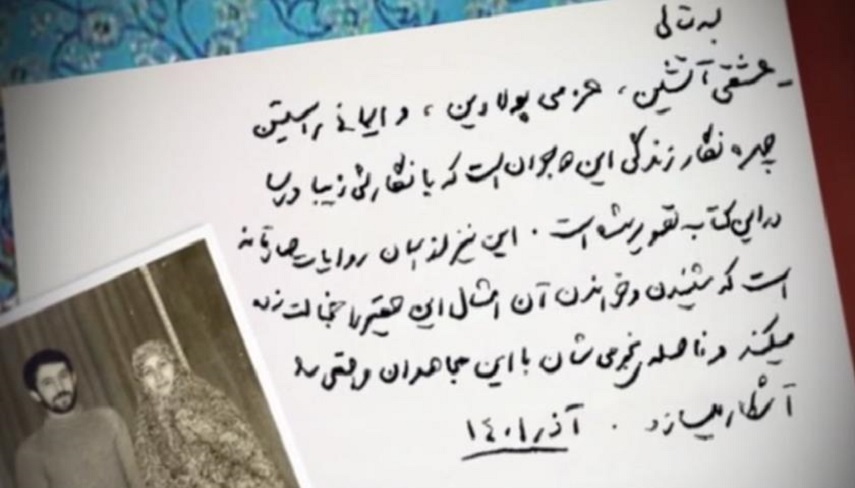 بسمه‌تعالی
- عشقی آتشین، عزمی پولادین، و ایمانی راستین
چهره نگار زندگی این دو جوان است که با نگارشی زیبا و رسا
در این کتاب به تصویر کشیده شده است. این نیز از همان روایات صادقانه
است که شنیدن و خواندن آن امثال این حقیر را خجالت زده
میکند و فاصله نجومی شان با این مجاهدان واقعی را
آشکار میسازد. آذر ۱۴۰۱